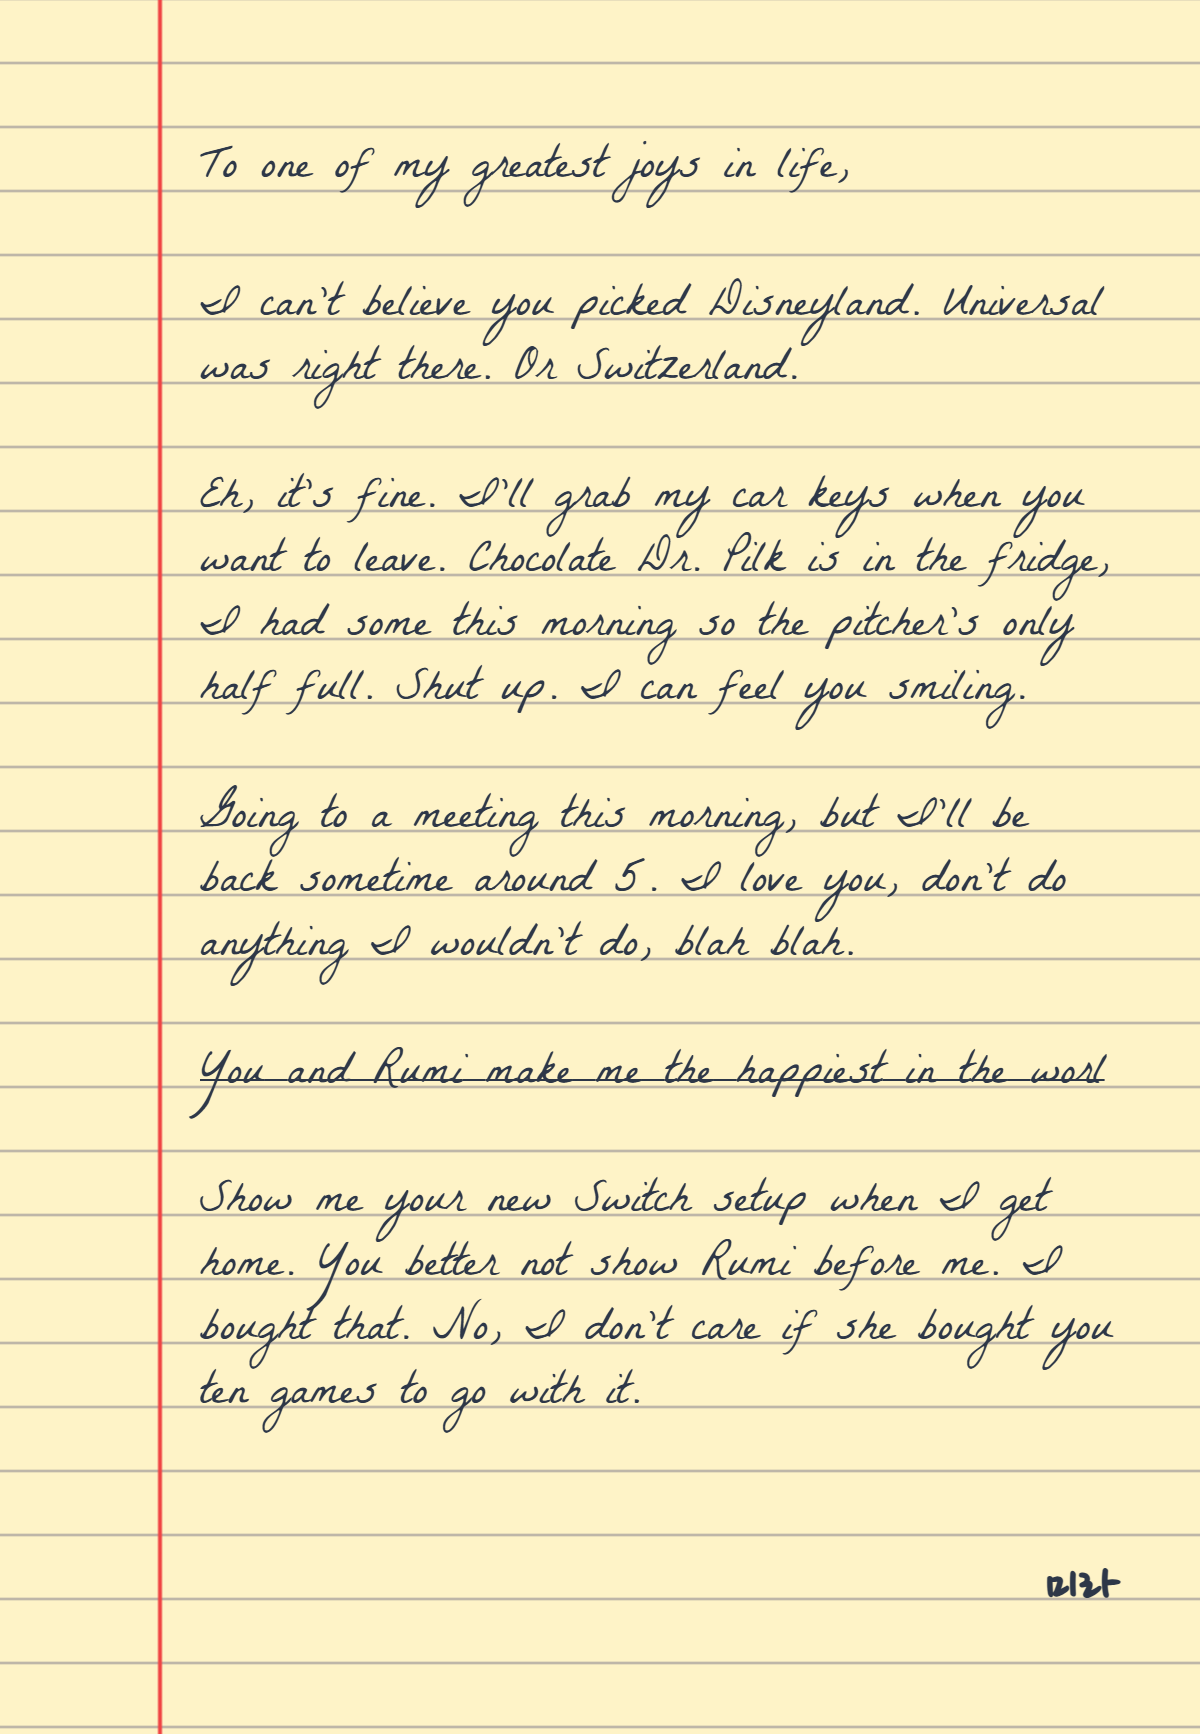 To one of my greatest joys in life,
I can't believe you picked Disneyland. Universal
was right there. Or Switzerland.
Eh, it's fine. I'll grab my car keys when you
want to leave. Chocolate Dr. Pilk is in the fridge,
I had some this morning so the pitcher's only
half full. Shut up. I can feel you smiling.
Going to a meeting this morning, but I'll be
back sometime around 5. I love you, don't do
anything I wouldn't do, blah blah.
You and Rumi make me the happiest in the worl
Show me your new Switch setup when I get
home. You better not show Rumi before me. I
bought that. No, I don't care if she bought you
ten games to go with it.
미라